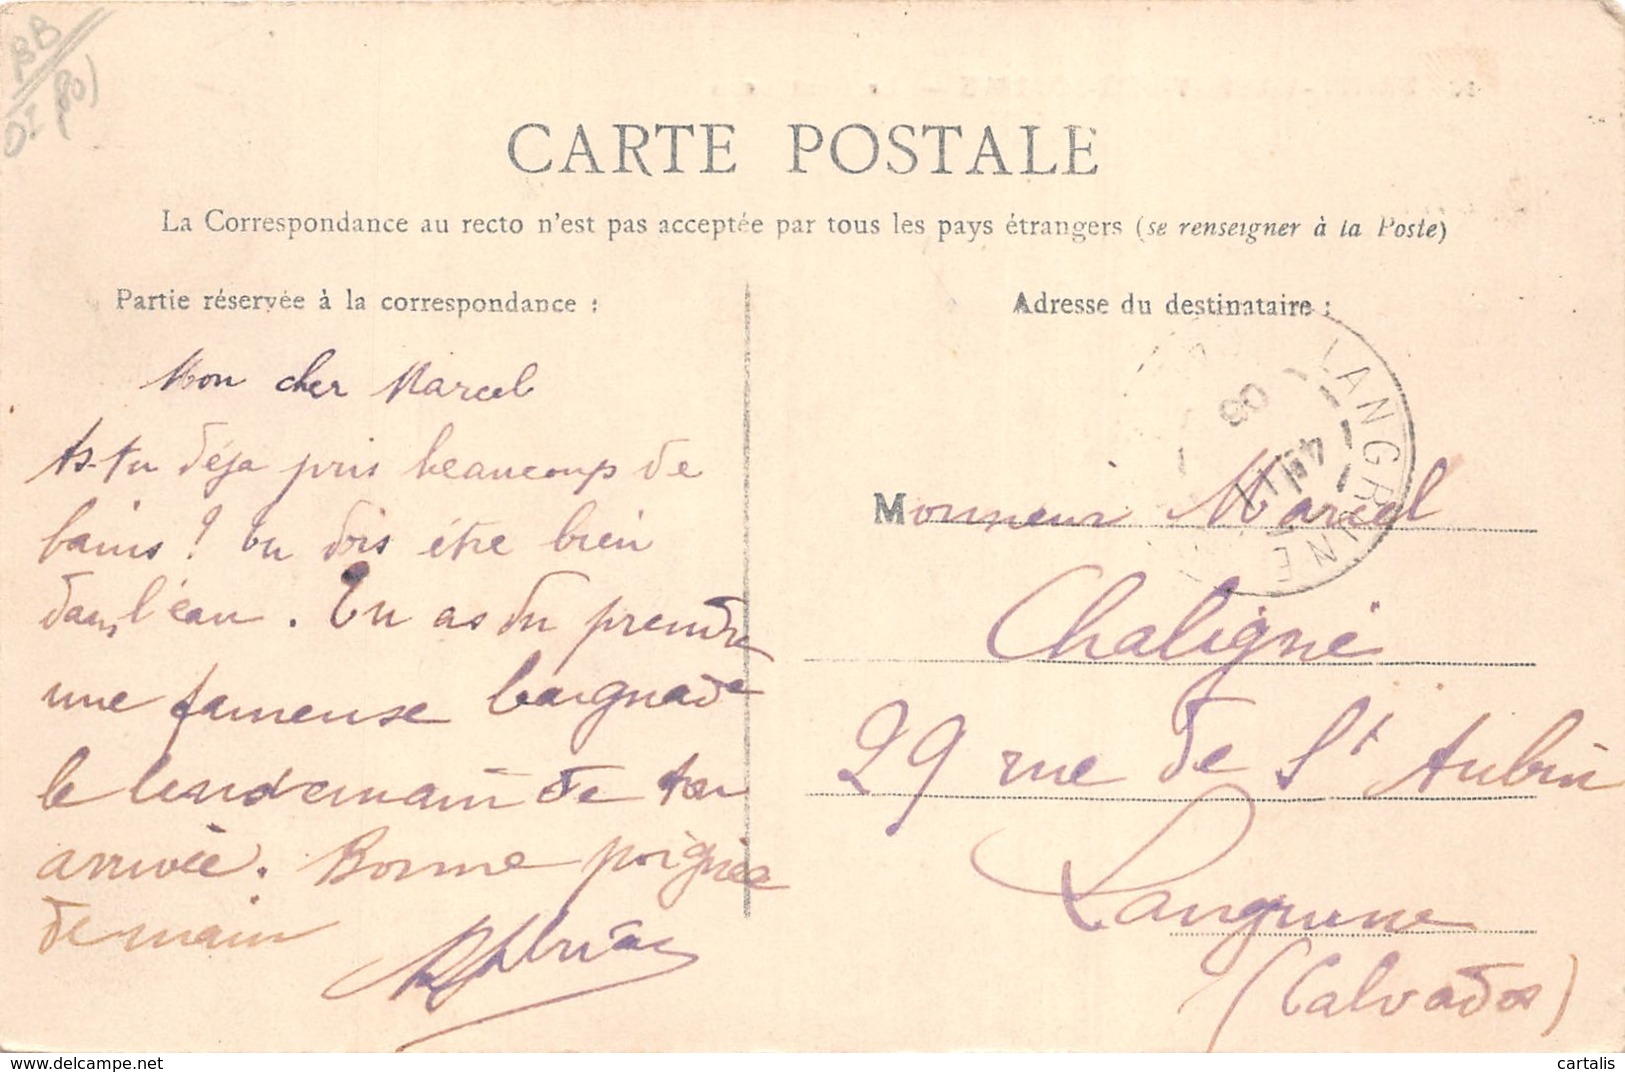 BB
CARTE POSTALE
La Correspondance au recto n'est pas acceptée par tous les pays étrangers (se renseigner à la Poste)
Partie réservée à la correspondance :
Mon cher Marcel
As-tu déja pris beaucoup de
bains ? Tu dois être bien
dans l'eau. Tu as du prendre
une fameuse baignade
le lendemain de ton
arrivée. Bonne poignée
de main
Adresse du destinataire :
LANGRUNE
08
Monsieur Marcel
Chaligné
29 rue de St Aubin
Langrune
(Calvados)
cartalis